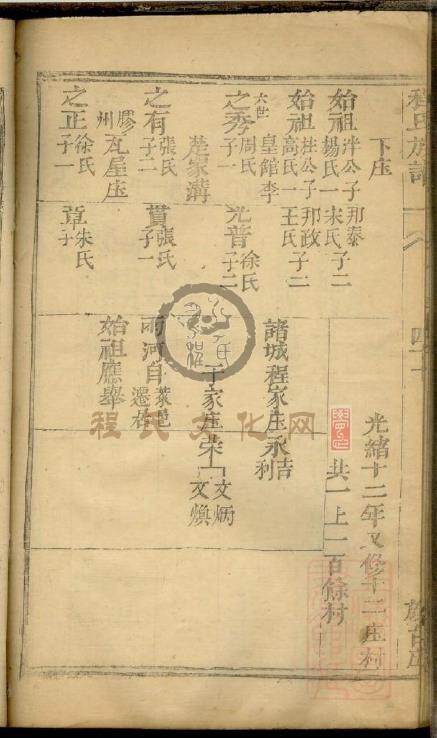 程氏族譜
下庄
始祖泮公子一楊氏 邦泰子二宋氏
始祖拄公子一高氏 邦政子二王氏
六世
皇館李
之秀周氏子一 光普徐氏子二
楚家溝
之有張氏子二 貰張氏子一
膠州
瓦屋庄
之正徐氏子一 章朱氏子一
光緒十二年又修十二庄村
共一上一百條村
諸城程家庄永吉利
于家庄荣
文炳
文煥
兩河自萊邑遷
始祖應舉
程氏文化网